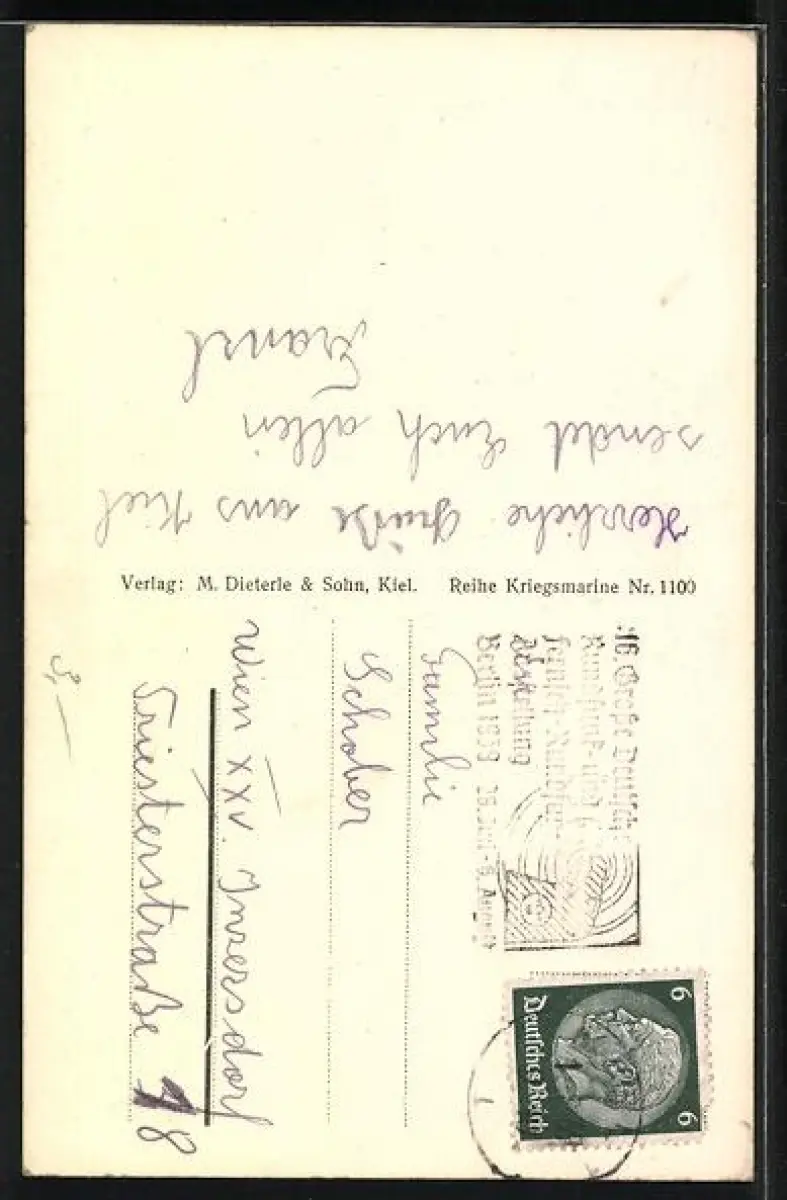 Herrliche Grüße aus Kiel
sendet Euch allen
Franzl
Verlag: M. Dieterle & Sohn, Kiel. Reihe Kriegsmarine Nr. 1100
16. Große Deutsche
Rundfunk- und
Fernseh-Rundfunk-
Ausstellung
Berlin 1939 28. Juli - 6. August
6 6
Deutsches Reich
Familie
Schober
Wien XXV. Inzersdorf
Triesterstraße 18